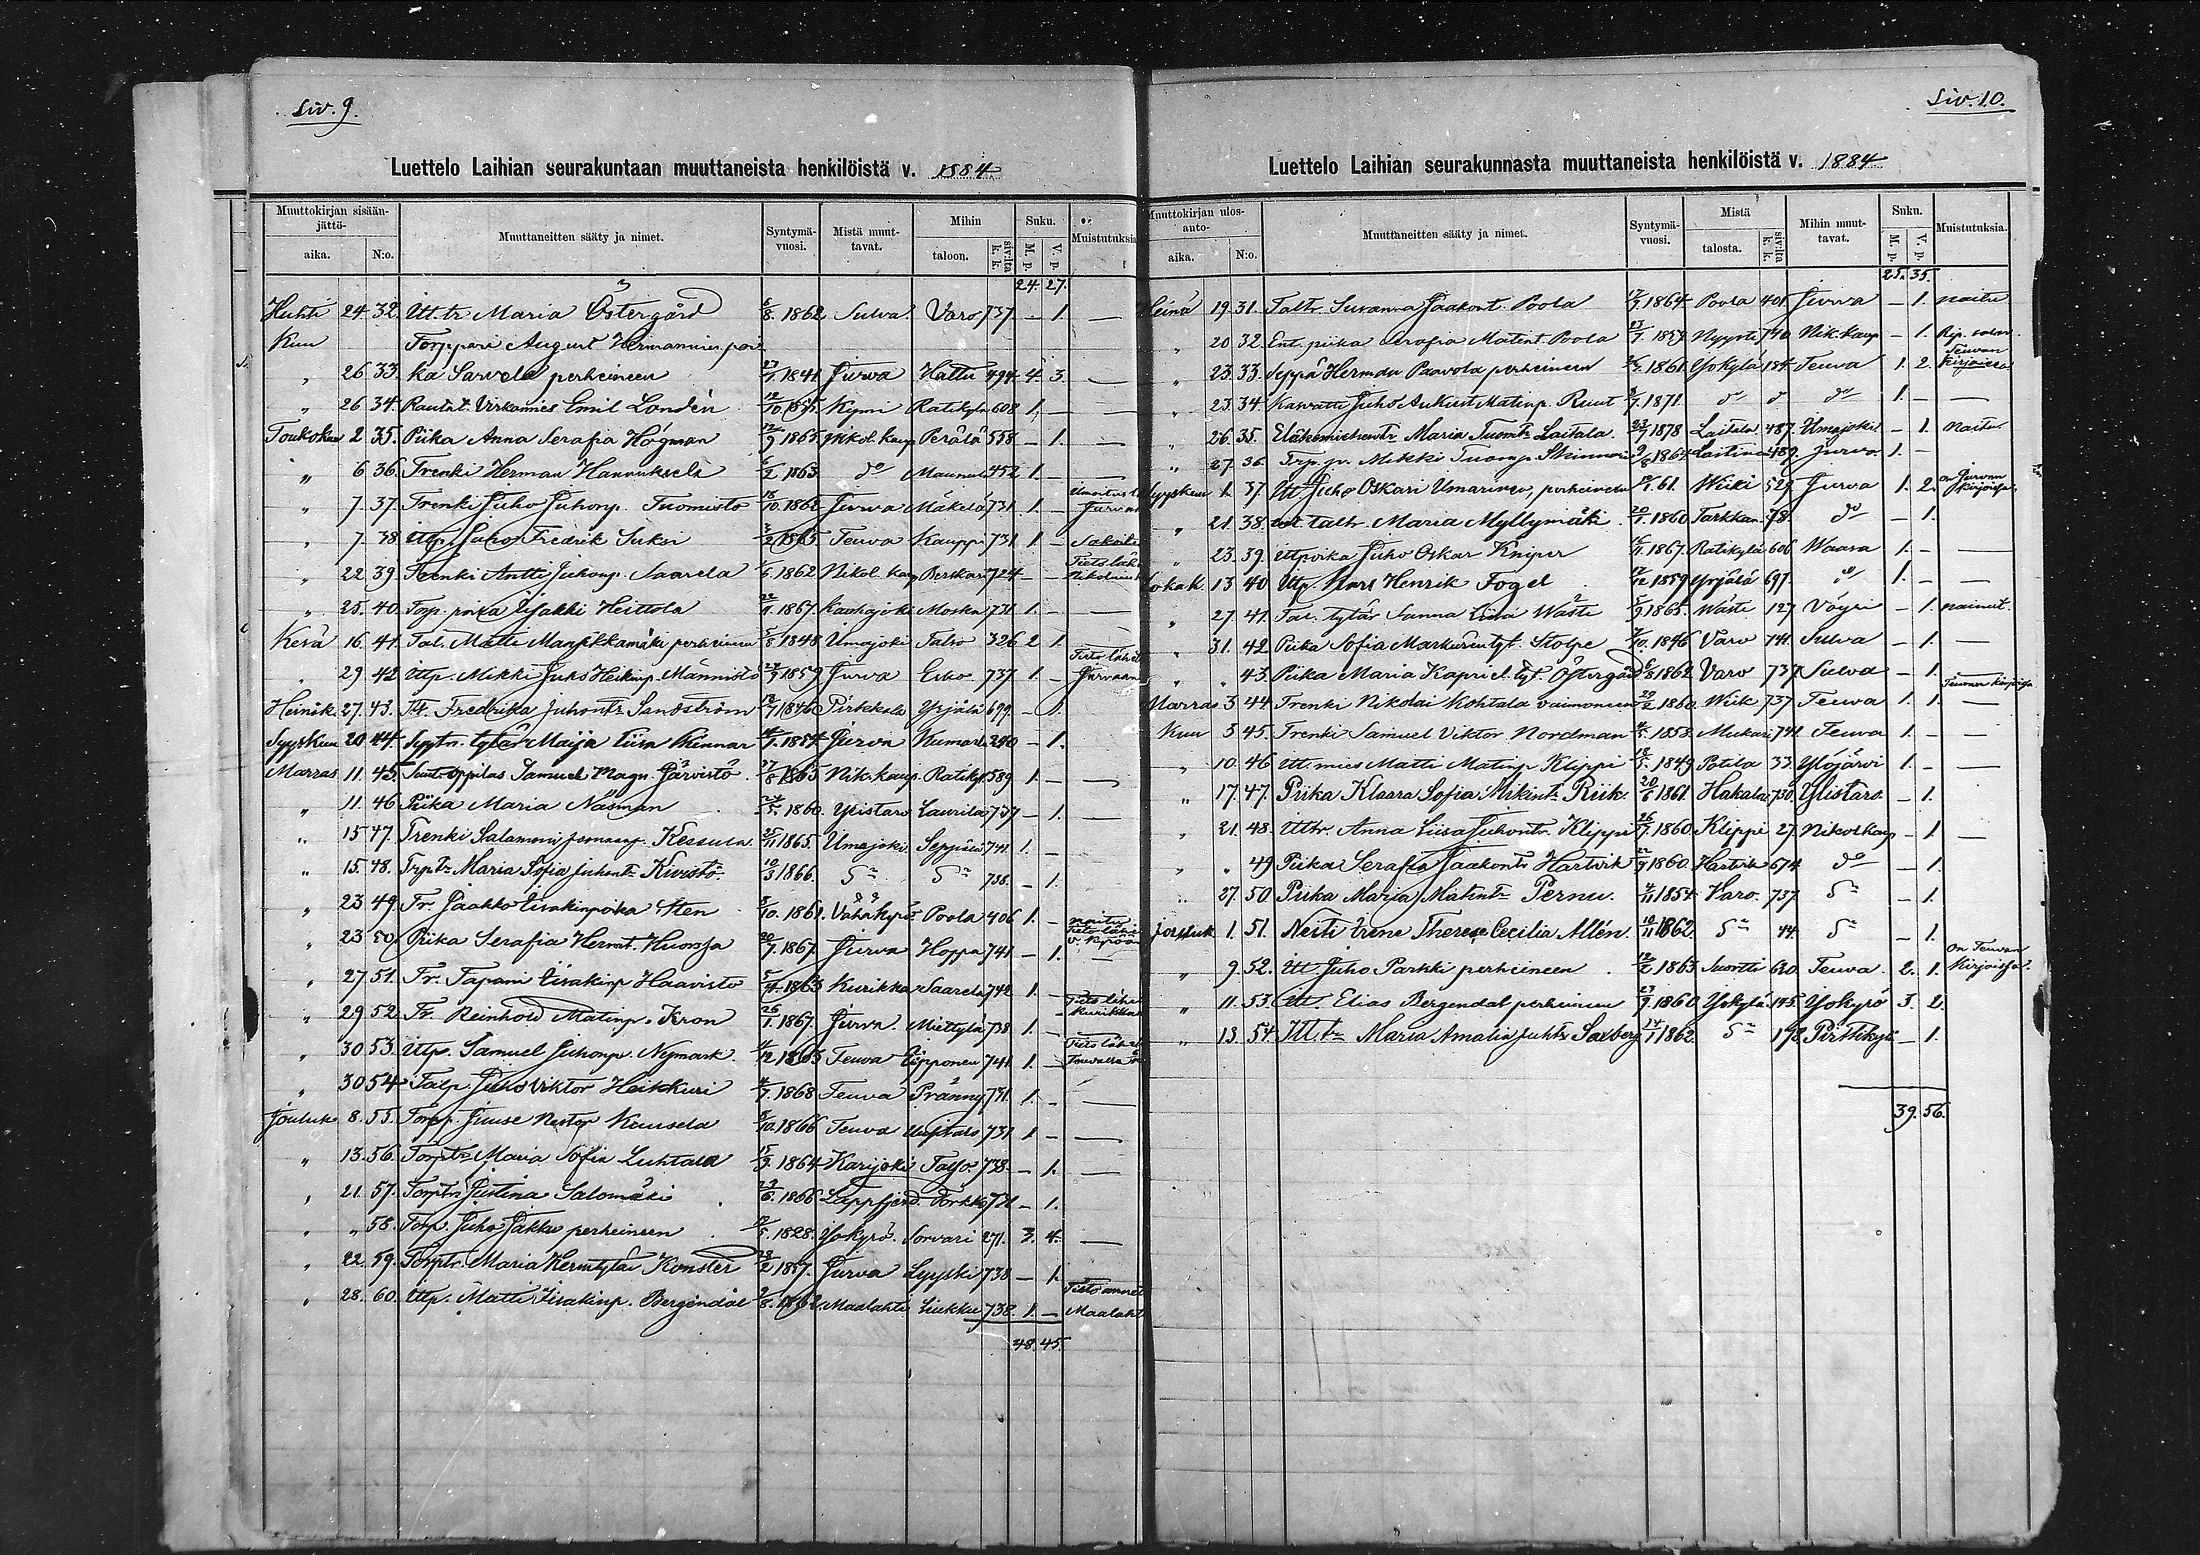 Siv. 9.
Luettelo Laihian seurakuntaan muuttaneista henkilöistä v. 1884
Muuttokirjan sisään-jättö- aika. N:o. Muuttaneitten sääty ja nimet. Syntymä-vuosi. Mistä muut-tavat. Mihin taloon. siv:lta k. k. Suku. M. p. V. p. Muistutuksia
24. 27.
Huhti 24. 32. Itt. tr Maria Östergård 6/8. 1862 Sulva Varo 737 - 1. —
Kuu Torppari August Hermanninpoi
„ 26 33. ka Sarvela perheineen 1841 Jurva Hattu 494 4. 3. —
„ 26 34. Rautat. Virkamies Emil Londén Kymi Ratikylä 608 1. — —
Toukokuu 2 35. Piika Anna Serafia Högman 1865 Nikol. kaup Perälä 558 - 1. —
„ 6 36. Trenki Herman Hannuksela 1863 do Maunula 452 1. — —
„ 7. 37. Trenki Juho Juhonp. Tuomisto 18/10. 1862 Jurva Mäkelä 731 1. — Jurvan
„ 7 38. Ittp. Juho Fredrik Suksi 1865 Teuva Kauppi 731 1 —
„ 22 39. Trenki Antti Juhonp. Saarela 1862 Nikol. kap Berskari 724 — —
„ 25. 40. Torp. poika Iisakki Heittola 1867. Kauhajoki Moska 731 1. — —
Kesä 16. 41. Tal. Matti Mansikkamäki perheineen 1848 Ilmajoki Talso 326 2 1.
„ 29 42 Ittp. Mikki Juho Heikinp. Männistö 1859 Jurva Esko 737 1. — Jurvaan
Heinäk. 27. 43. Itt. Fredrika Juhontr. Sandström 1846 Pirkkala Yrjälä 699 — 1.
Syyskuu 20 44. tytär Maija Liisa Rinnar 1854 Jurva Kumara 240 — 1.
Marras 11. 45. oppilas Samuel Magn. Järvistö 1865 Nik. kaup. Ratikyl 589 1. — —
„ 11. 46 Piika Maria Näsman 1860. Ylistaro Laurila 737 — 1. —
„ 15 47. Trenki Salomoni Joonaanp. Kessula 25/11 1865. Ilmajoki Seppälä 741 1. —
„ 15. 48. Trptr Maria Sofia Juhontr Kivistö. 10/3 1866. Do Do 738. — 1.
„ 23 49. Tr. Jaakko Iisakinpoika Sten 1861. Vähäkyrö Poola 406 1. —
„ 23 50. Piika Serafia Hermt. Huonsa 1867. Jurva Hoppa 741 — 1. —
„ 27 51. Tr. Tapani Iisakinp Haavisto 1863 Kurikka Saarela 742 1. —
„ 29 52. Tr. Reinhold Matinp. Kron 26/1. 1867. Jurva. Miettylä 738 1. — Kurikkaa
„ 30 53. Ittp. Samuel Juhonp. Nymark 1863 Teuva Lipponen 741 1. —
„ 30 54 Talp. Juho Viktor Heikkuri 1868 Teuva Pränny 731. 1. — —
Jouluk 8. 55. Torpp. Juuse Nestop Kuusela 8/10. 1866 Teuva 731 1 — —
„ 13. 56. Torptr Maria Sofia Luhtala 1864 Karijoki Talso. 738. — 1. —
„ 21. 57. Torptr. Justina Salomäki 23/6. 1866. Lappfjerd. Torkko 731 — 1.
„ „ 58. Torp. Juho Jakku perheineen 1828. Isokyrö. Sorvari 271. 3. 4. —
„ 22. 59. Torptr. Maria Hermtytär Konster 1857. Jurva Lyyski 738 — 1.
„ 28. 60. Ittp. Matti Iisakinp. Bergendal 1862 Maalahti Liukku 738. 1. — Maalaht
48. 45.
Siv. 10.
Luettelo Laihian seurakunnasta muuttaneista henkilöistä v. 1884
Muuttokirjan ulos-anto- aika. N:o. Muuttaneitten sääty ja nimet. Syntymä-vuosi. Mistä talosta. siv:lta k. k. Mihin muut-tavat. Suku. M. p. V. p. Muistutuksia.
25. 35.
Heinä 19. 31. Taltr. Susanna Jaakont. Poola 1864 Poola 401 Jurva — 1. naitu
„ 20 32. Ent. piika Serafia Matint. Poola 1859 Nyysti 740 Nik. kaup — 1.
„ 23. 33. Seppä Herman Paavola perheineen 1861 Isokylä 184 Teuva 1. 2. Teuvan kirjoissa
„ 23. 34. Kasvatti Juho Aukust Matinp. Ruut 1871. do do do 1. — —
„ 26. 35. Eläkemiehentr. Maria Tuomtr. Laitala. 1878 Laitala 487 Ilmajoki — 1. naitu
„ 27. 36. Torp. p. Mikki Tuomp. 1864 489. Jurva. 1. —
Syyskuu 1. 37. Itt Juho Oskari perheineen 61. Wiiki 529 Jurva 1. 2. on Jurvan kirjoissa
„ 21. 38. taltr. Maria Myllymäki 20/1. 1860 Tarkkan. 78. do — 1.
„ 23. 39. Ittpoika Juho Oskar Kniper 1867. Ratikylä 606 Waasa 1. — —
Lokak. 13 40 Ittp. Karl Henrik Fogel 1859 Yrjälä 697. do 1. — —
„ 27. 41. Tal. tytär Sanna Liisa Wäste 5/9 1865. Wäste 127 Vöyri — 1. nainut.
„ 31. 42 Piika Sofia Markuxentyt. Stolpe 1846 Varo 741 Sulva — 1. —
„ „ 43. Piika Maria Kapriel. tyt. Östergård 6/8 1862 Varo 737 Sulva — 1.
Marras 3 44 Trenki Nikolai Kohtala vaimoneen 1860. Wiik 737 Teuva 1. 1.
Kuu 3 45. Trenki Samuel Viktor Nordman 1858. Mukari 741 Teuva 1 — —
„ 10. 46 Itt. mies Matti Matinp Klippi 18/5. 1849 Potila 33. Ylöjärvi 1. — —
„ 17. 47. Piika Klaara Sofia Mikintr Riik. 20/6 1861 Hakala 730. Ylistaro — 1.
„ 21. 48. Ittr. Anna Liisa Juhontr. Klippi 26/7. 1860. Klippi 27 Nikol. kap — 1. —
„ „ 49 Piika Serafia Jaakontr Hartvik 1860. Hartvik 674. do — 1.
„ 27. 50 Piika Maria Matintr Pernu. 1854 Varo. 737. Do — 1.
Jouluk 1. 51. Neiti Irene Therese Cecilia Allén. 10/11 1862. Do 44. Do — 1.
„ 9. 52. Itt. Juho Parkki perheineen 1863 Suortti 620 Teuva. 2. 1. On Teuvan kirjoissa.
„ 11. 53. Itt Elias Bergendal perheineen 23/9. 1860 Isokylä 145 Isokyrö 3. 2.
„ 13. 54. Itt. tr Maria Amalia Juhtr Saxberg 14/1 1862. Do 178. Pirttikyl — 1.
39. 56.